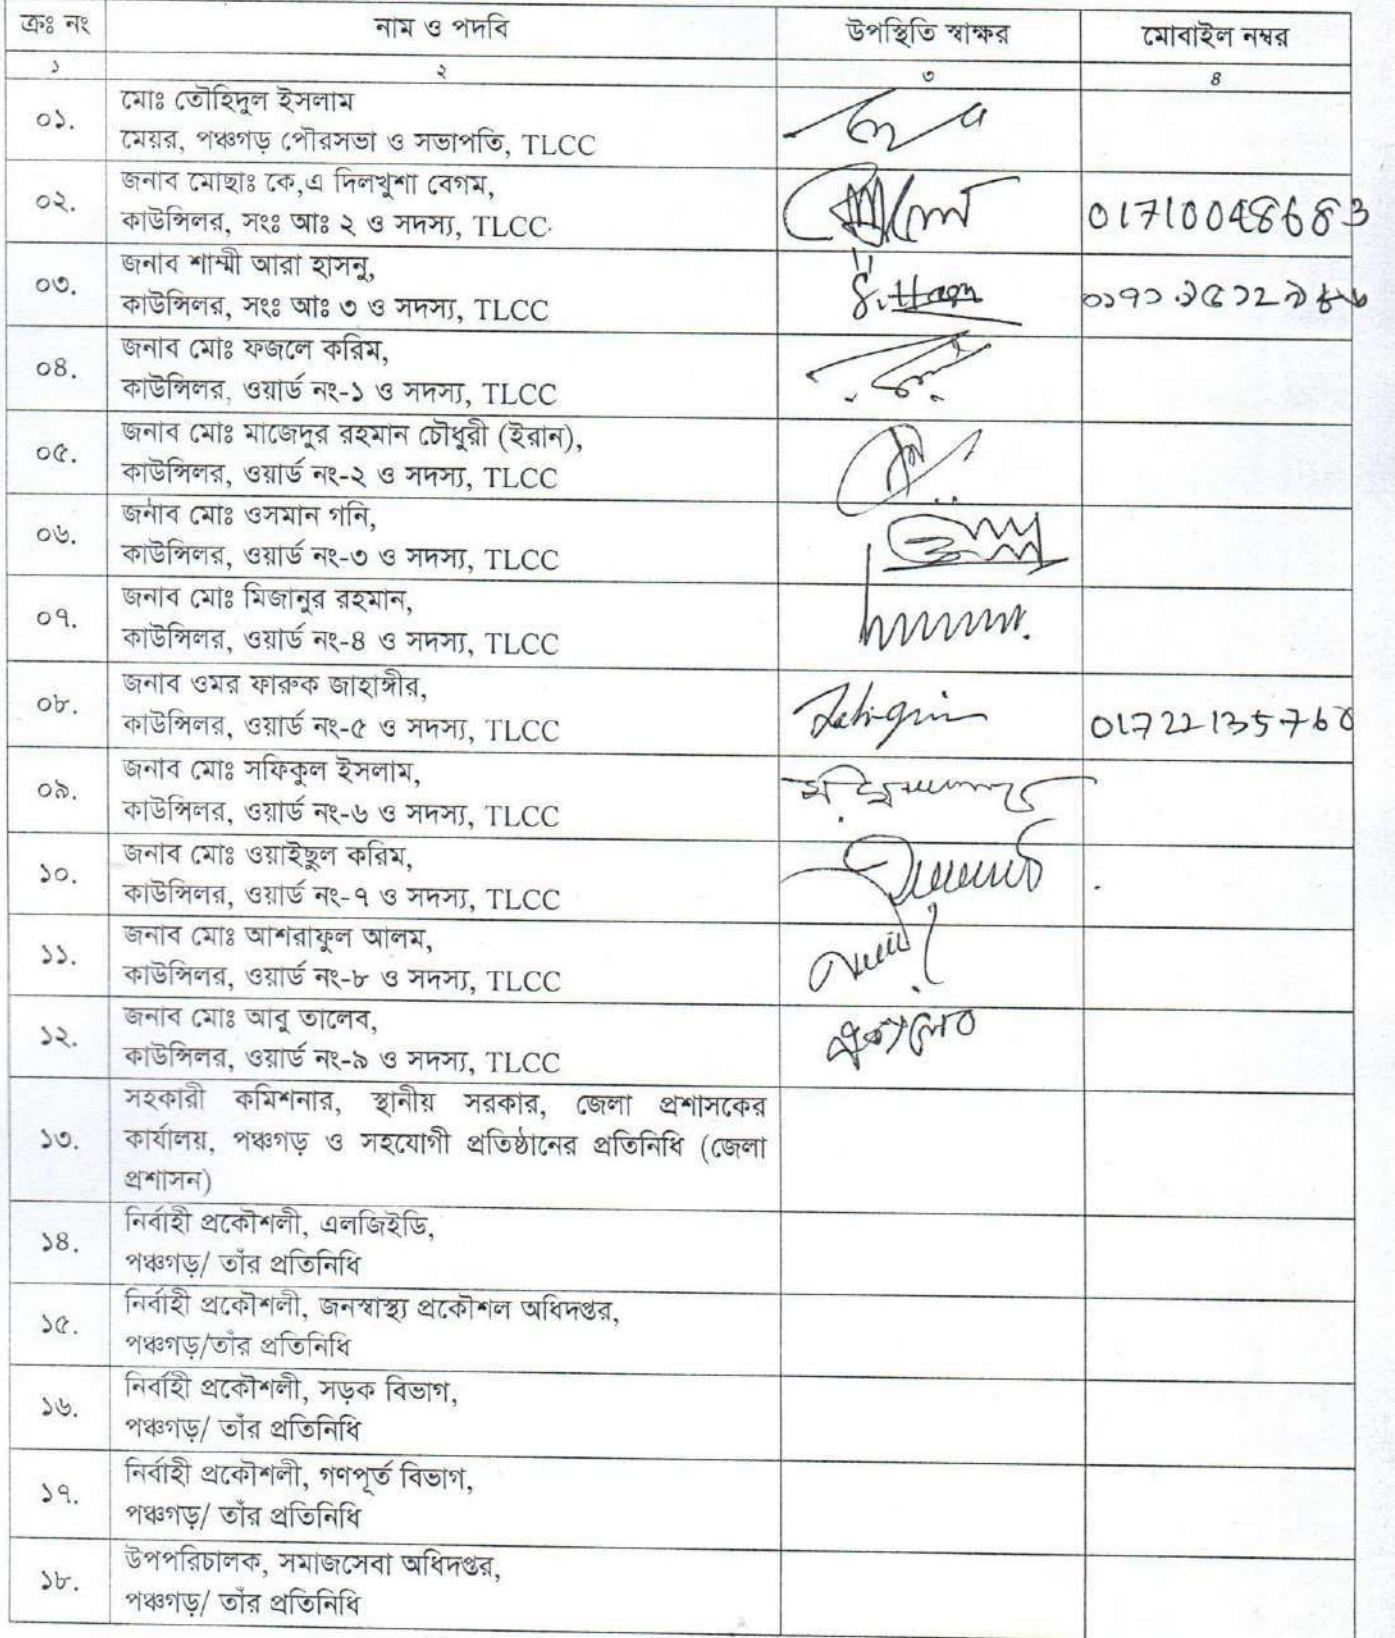 ক্রঃ নং নাম ও পদবি উপস্থিতি স্বাক্ষর মোবাইল নম্বর
১ ২ ৩ ৪
০১. মোঃ তৌহিদুল ইসলাম
মেয়র, পঞ্চগড় পৌরসভা ও সভাপতি, TLCC
০২. জনাব মোছাঃ কে,এ দিলখুশা বেগম,
কাউন্সিলর, সংঃ আঃ ২ ও সদস্য, TLCC 01710048683
০৩. জনাব শাম্মী আরা হাসনু,
কাউন্সিলর, সংঃ আঃ ৩ ও সদস্য, TLCC
০৪. জনাব মোঃ ফজলে করিম,
কাউন্সিলর, ওয়ার্ড নং-১ ও সদস্য, TLCC
০৫. জনাব মোঃ মাজেদুর রহমান চৌধুরী (ইরান),
কাউন্সিলর, ওয়ার্ড নং-২ ও সদস্য, TLCC
০৬. জনাব মোঃ ওসমান গনি,
কাউন্সিলর, ওয়ার্ড নং-৩ ও সদস্য, TLCC
০৭. জনাব মোঃ মিজানুর রহমান,
কাউন্সিলর, ওয়ার্ড নং-৪ ও সদস্য, TLCC
০৮. জনাব ওমর ফারুক জাহাঙ্গীর,
কাউন্সিলর, ওয়ার্ড নং-৫ ও সদস্য, TLCC
০৯. জনাব মোঃ সফিকুল ইসলাম,
কাউন্সিলর, ওয়ার্ড নং-৬ ও সদস্য, TLCC
১০. জনাব মোঃ ওয়াইছুল করিম,
কাউন্সিলর, ওয়ার্ড নং-৭ ও সদস্য, TLCC
১১. জনাব মোঃ আশরাফুল আলম,
কাউন্সিলর, ওয়ার্ড নং-৮ ও সদস্য, TLCC
১২. জনাব মোঃ আবু তালেব,
কাউন্সিলর, ওয়ার্ড নং-৯ ও সদস্য, TLCC
১৩. সহকারী কমিশনার, স্থানীয় সরকার, জেলা প্রশাসকের
কার্যালয়, পঞ্চগড় ও সহযোগী প্রতিষ্ঠানের প্রতিনিধি (জেলা
প্রশাসন)
১৪. নির্বাহী প্রকৌশলী, এলজিইডি,
পঞ্চগড়/ তাঁর প্রতিনিধি
১৫. নির্বাহী প্রকৌশলী, জনস্বাস্থ্য প্রকৌশল অধিদপ্তর,
পঞ্চগড়/তাঁর প্রতিনিধি
১৬. নির্বাহী প্রকৌশলী, সড়ক বিভাগ,
পঞ্চগড়/ তাঁর প্রতিনিধি
১৭. নির্বাহী প্রকৌশলী, গণপূর্ত বিভাগ,
পঞ্চগড়/ তাঁর প্রতিনিধি
১৮. উপপরিচালক, সমাজসেবা অধিদপ্তর,
পঞ্চগড়/ তাঁর প্রতিনিধি